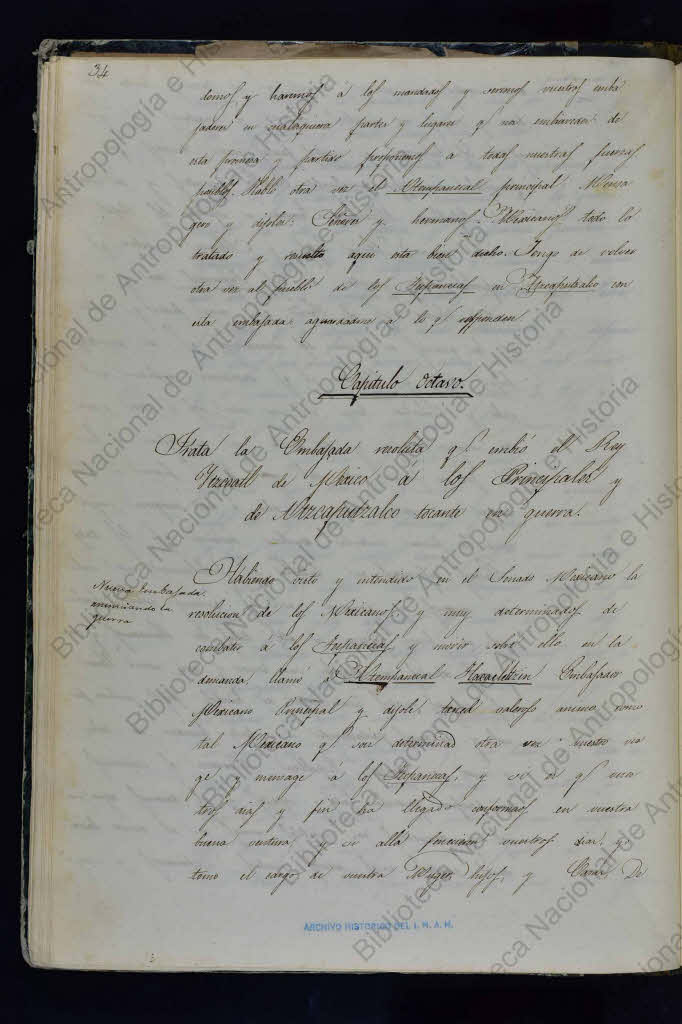 34
domos, y haremos á los mandados y seremos vuestros emba
jadores en cualesquiera partes y lugares q no embiaredes: de
esta promesa y partido proponemos á todas nuestras fuerzas
posibles. Habló otra vez el Atempanecatl principal Mensa
gero y dijoles: Señores y hermanos Mexicanos todo lo
tratado y resuelto aqui esta bien dicho. Tengo de volver
otra vez al pueblo de los Tepanecas en Azcaputzalco con
esta embajada: aguardadme á lo q. responden
Capitulo Octavo.
Trata la Embajada resoluta q.e embió el Rey
Itzcoatl de Mexico a los Principales y
de Atzcaputzalco tocante en guerra.
Nueva Embajada
anunciando la
guerra
Habiendo visto y entendido en el Senado Mexicano la
resolucion de los Mexicanos y muy determinados de
combatir á los Tepanecas y morir sobre ello en la
demanda, llamó á Atempanecatl Tlacaeleltzin Embajador
Mexicano Principal y dijole: tened valeroso animo, como
tal Mexicano q. sois determinad otra vez vuestro via
ge y mensage á los Tepanecas, y si es q. vues
tros dias y fin ha llegado conformaos en vuestra
buena ventura y si allá fenecieren vuestros dias, yo
tomo el cargo de vuestra Muger, hijos, y Casas. De
ARCHIVO HISTORICO DEL I. N. A. H.
Biblioteca Nacional de Antropología e Historia